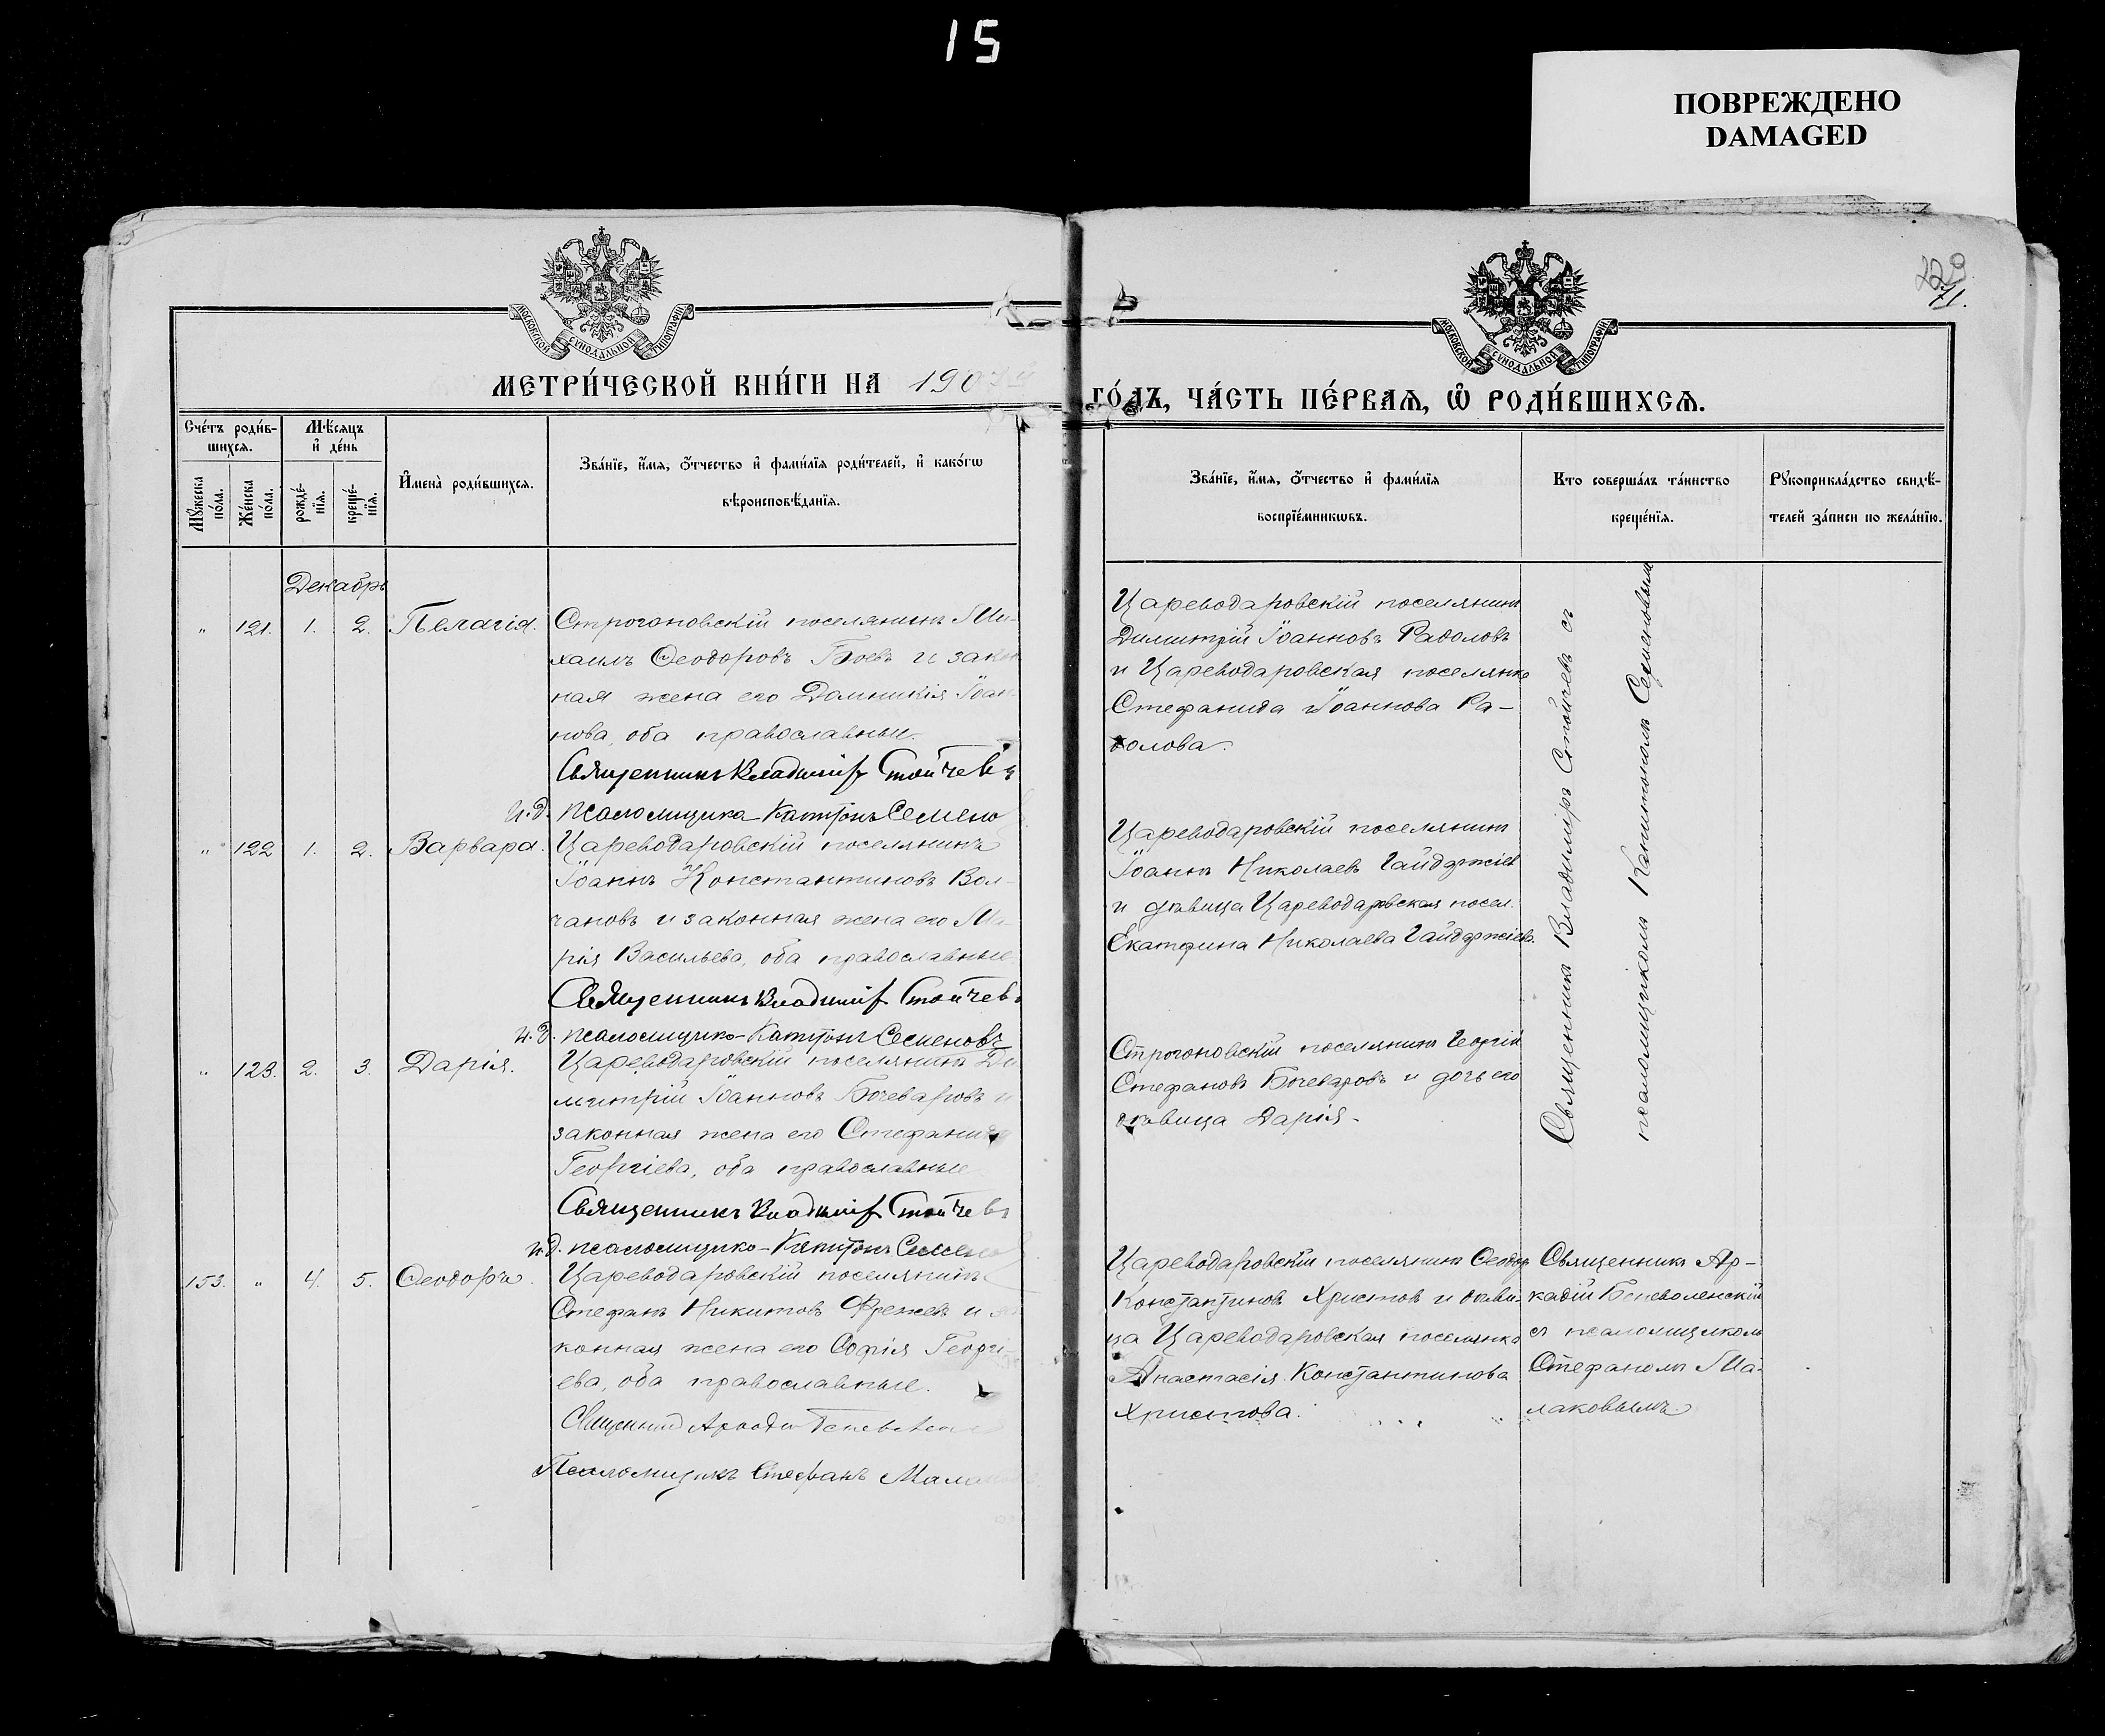 15
ПОВРЕЖДЕНО
DAMAGED
229
71.
МОСКОВСКОЙ СѴНОДАЛЬНОЙ ТИПОГРАФІИ
МОСКОВСКОЙ СѴНОДАЛЬНОЙ ТИПОГРАФІИ
МЕТРИ́ЧЕСКОЙ КНИ́ГИ НА 190
ГО́ДЪ, ЧА́СТЬ ПЕ́РВАѦ, Ѽ РОДИ́ВШИХСѦ.
Сче́тъ роди́в-
шихсѧ.
Мѣ́сѧцъ
и҆ де́нь
Мꙋ́жеска
по́ла.
Же́нска
по́ла.
рожде́-
нїѧ.
креще́-
нїѧ.
И҆мена̀ роди́вшихсѧ.
Зва́нїе, и҆́мѧ, ѻ҆́тчество и҆ фами́лїѧ роди́телей, и҆ како́гѡ
вѣроисповѣ́данїѧ.
Зва́нїе, и҆́мѧ, ѻ҆́тчество и҆ фами́лїѧ
воспрїе́мникѡвъ.
Кто соверша́лъ та́инство
креще́нїѧ.
Рꙋкоприкла́дство свидѣ́-
телей за́писи по жела́нїю.
Декабрь
" 121. 1. 2. Пелагія. Строгоновскій поселянинъ Ми-
хаилъ Ѳеодоровъ Боевъ и закон
ная жена его Домникія Іоан-
нова, оба православные.
Священникъ Владиміръ Стойчевъ
и.д. псаломщика Капитонъ Семено
Цареводаровскій поселянинъ
Димитрій Іоанновъ Радоловъ
и Цареводаровская поселянка
Стефанида Іоаннова Ра-
долова.
" 122 1. 2. Варвара. Цареводаровскій поселянинъ
Іоаннъ Константиновъ Вол-
чановъ и законная жена его Ма-
рія Васильева, оба православные
Священникъ Владиміръ Стойчевъ
и.д. псаломщика Капитонъ Семеновъ
Цареводаровскій поселянинъ
Іоаннъ Николаевъ Гайдаржіев
и дѣвица Цареводаровская посел.
Екатерина Николаева Гайдаржіева.
" 123. 2. 3. Дарія. Цареводаровскій поселянинъ Ди
митрій Іоанновъ Бочеваровъ и
законная жена его Стефанида
Георгіева, оба православные
Священникъ Владиміръ Стойчевъ
и.д. псаломщика Капитонъ Семено
Строгоновскій поселянинъ Георгій
Стефановъ Бочеваровъ и дочь его
дѣвица Дарія.
Священникъ Владиміръ Стойчевъ съ
псаломщикомъ Капитономъ Семеновымъ
153. " 4. 5. Ѳеодоръ. Цареводаровскій поселянинъ
Стефанъ Никитовъ Френсевъ и за
конная жена его Софія Георгі-
ева, оба православные.
Псаломщикъ Стефанъ Мала
Цареводаровскій поселянинъ Ѳеодор
Константиновъ Христовъ и дѣви-
ца Цареводаровская поселянка
Анастасія Константинова
Христова.
Священникъ Ар-
кадій Беневоленскій
съ псаломщикомъ
Стефаномъ Ма-
лаковымъ.